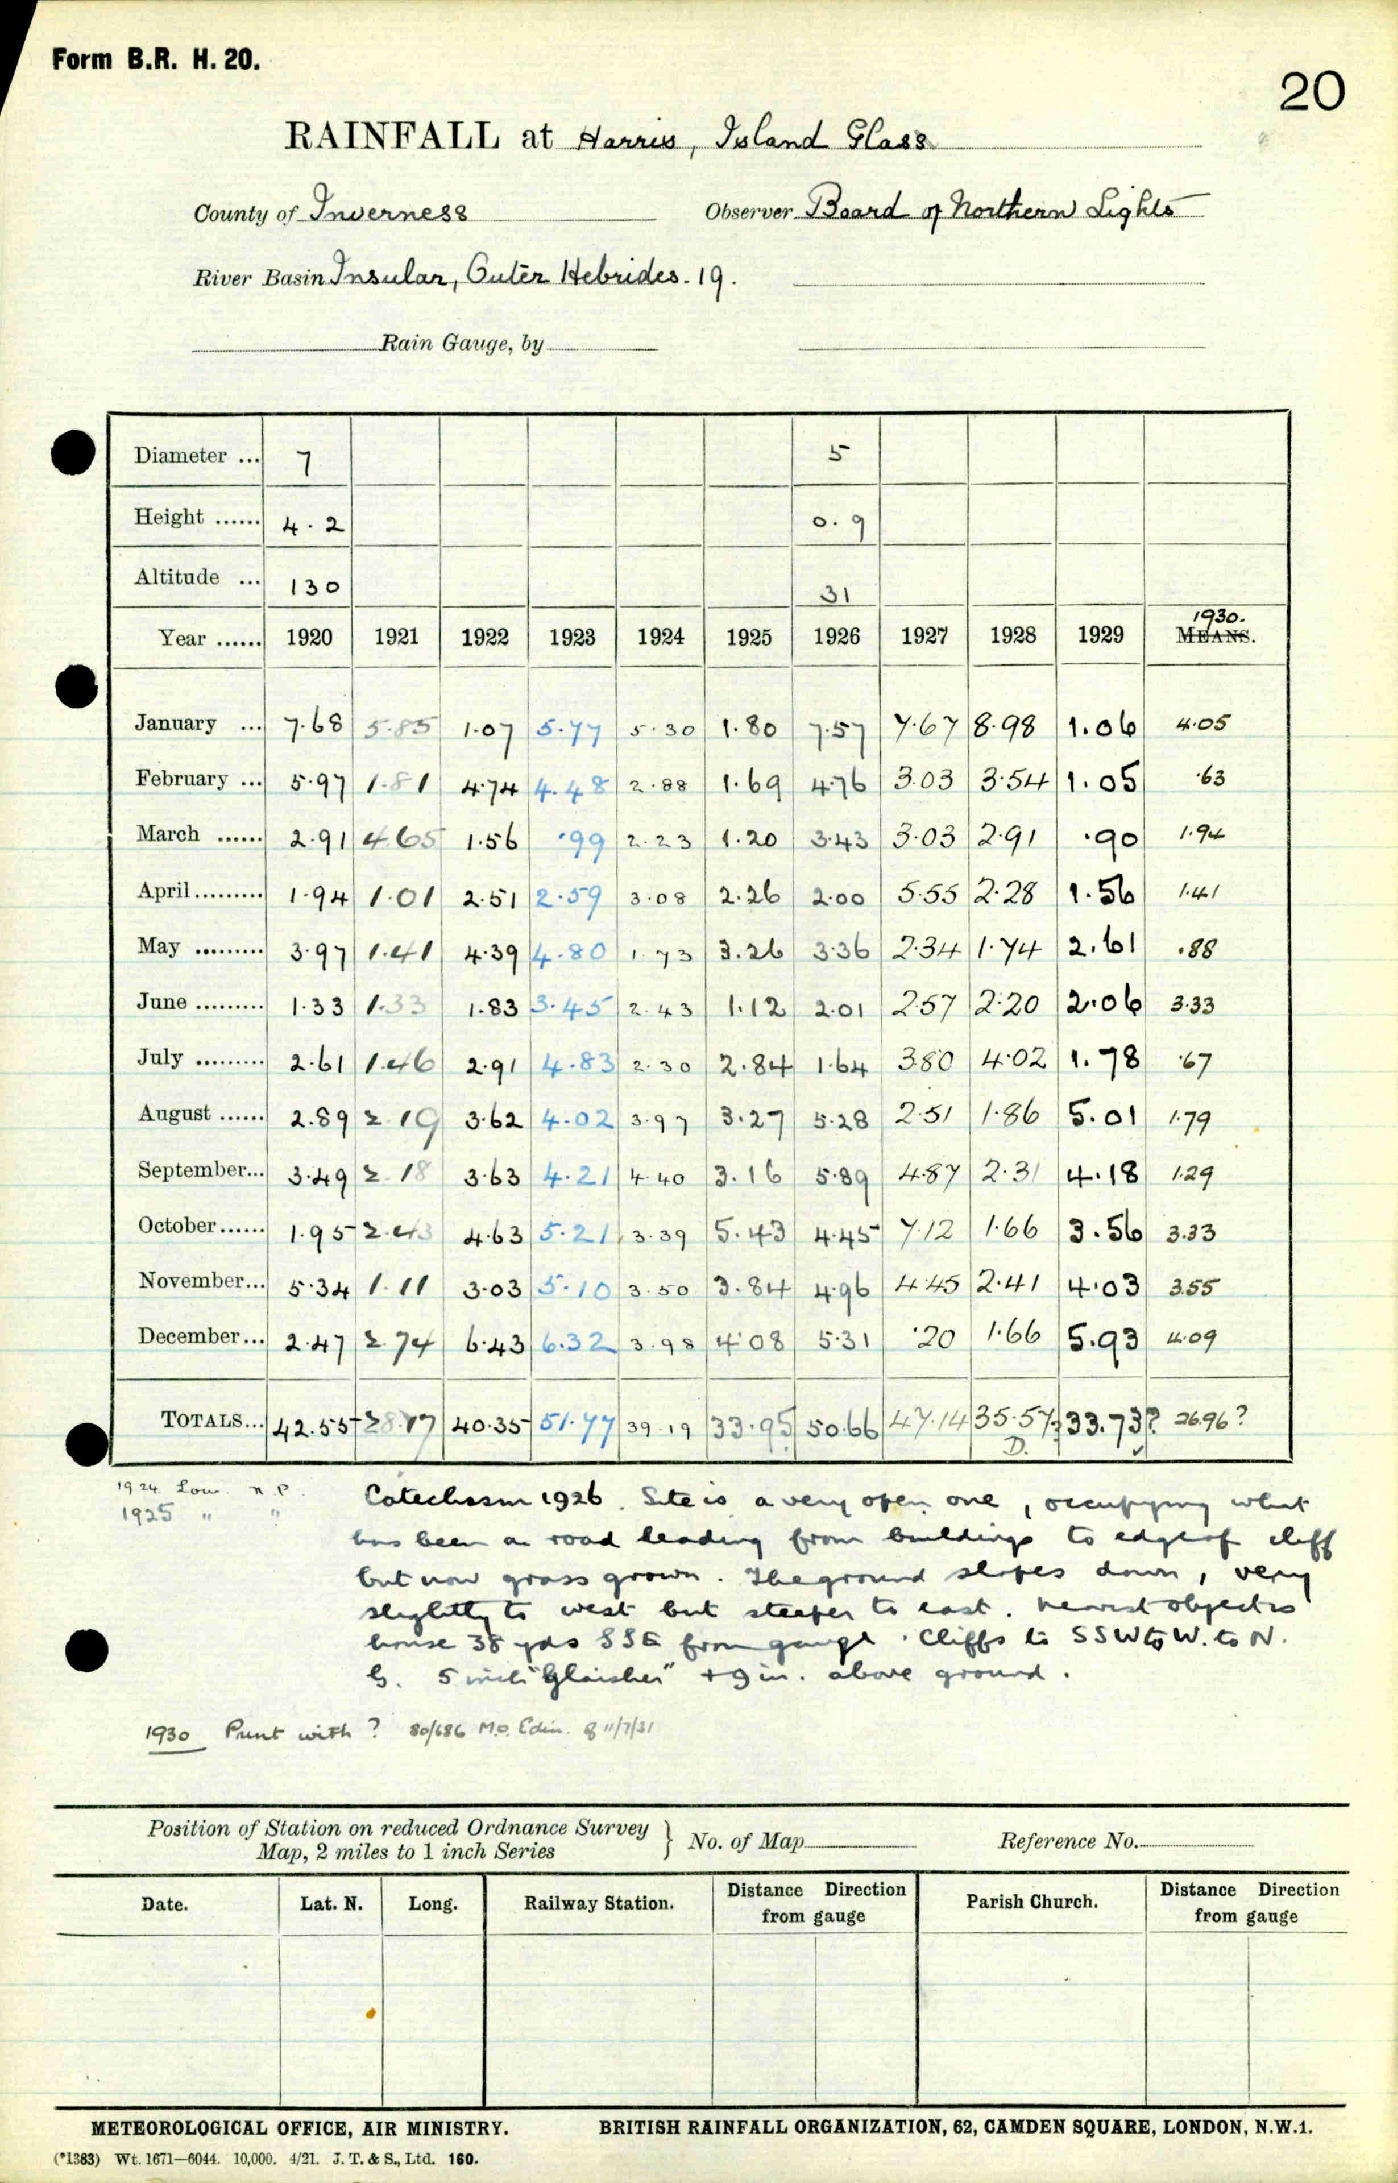 Form B.R. H. 20.
20
RAINFALL at Harris, Island Glass
County of Inverness Observer Board of Northern Lights
River Basin Insular, Outer Hebrides. 19.
Rain Gauge, by
Diameter ... 7 5
Height ...... 4.2 0.9
Altitude ... 130 31
1930.
Year ...... 1920 1921 1922 1923 1924 1925 1926 1927 1928 1929 MEANS.
January ... 7.68 5.85 1.07 5.77 5.30 1.80 7.57 7.67 8.98 1.06 4.05
February ... 5.97 1.81 4.74 4.48 2.88 1.69 4.76 3.03 3.54 1.05 .63
March ...... 2.91 4.65 1.56 .99 2.23 1.20 3.43 3.03 2.91 .90 1.94
April......... 1.94 1.01 2.51 2.59 3.08 2.26 2.00 5.55 2.28 1.56 1.41
May ......... 3.97 1.41 4.39 4.80 1.73 3.26 3.36 2.34 1.74 2.61 .88
June ......... 1.33 1.33 1.83 3.45 2.43 1.12 2.01 2.57 2.20 2.06 3.33
July ......... 2.61 1.46 2.91 4.83 2.30 2.84 1.64 3.80 4.02 1.78 .67
August ...... 2.89 2.19 3.62 4.02 3.97 3.27 5.28 2.51 1.86 5.01 1.79
September... 3.49 2.18 3.63 4.21 4.40 3.16 5.89 4.87 2.31 4.18 1.29
October...... 1.95 2.43 4.63 5.21 3.39 5.43 4.45 7.12 1.66 3.56 3.33
November... 5.34 1.11 3.03 5.10 3.50 3.84 4.96 4.45 2.41 4.03 3.55
December... 2.47 2.74 6.43 6.32 3.98 4.08 5.31 .20 1.66 5.93 4.09
TOTALS... 42.55 28.17 40.35 51.77 39.19 33.95 50.66 47.14 35.57 33.73? 26.96?
D. ✓
1924 Low. n P.
1925 " "
Catechism 1926. Site is a very open one, occupying what
has been a road leading from buildings to edge of cliff
but now grass grown. The ground slopes down, very
slightly to west but steeper to east. Nearest object is
house 38 yds SSE from gauge. Cliffs to SSW to W. to N.
G. 5 inch "Glaisher" +9 in. above ground.
1930 Print with ? 80/686 M.O. Edin. 11/7/31
Position of Station on reduced Ordnance Survey
Map, 2 miles to 1 inch Series } No. of Map Reference No.
Date. Lat. N. Long. Railway Station. Distance Direction from gauge Parish Church. Distance Direction from gauge
METEOROLOGICAL OFFICE, AIR MINISTRY. BRITISH RAINFALL ORGANIZATION, 62, CAMDEN SQUARE, LONDON, N.W.1.
(*1383) Wt. 1671—6044. 10,000. 4/21. J. T. & S., Ltd. 160.